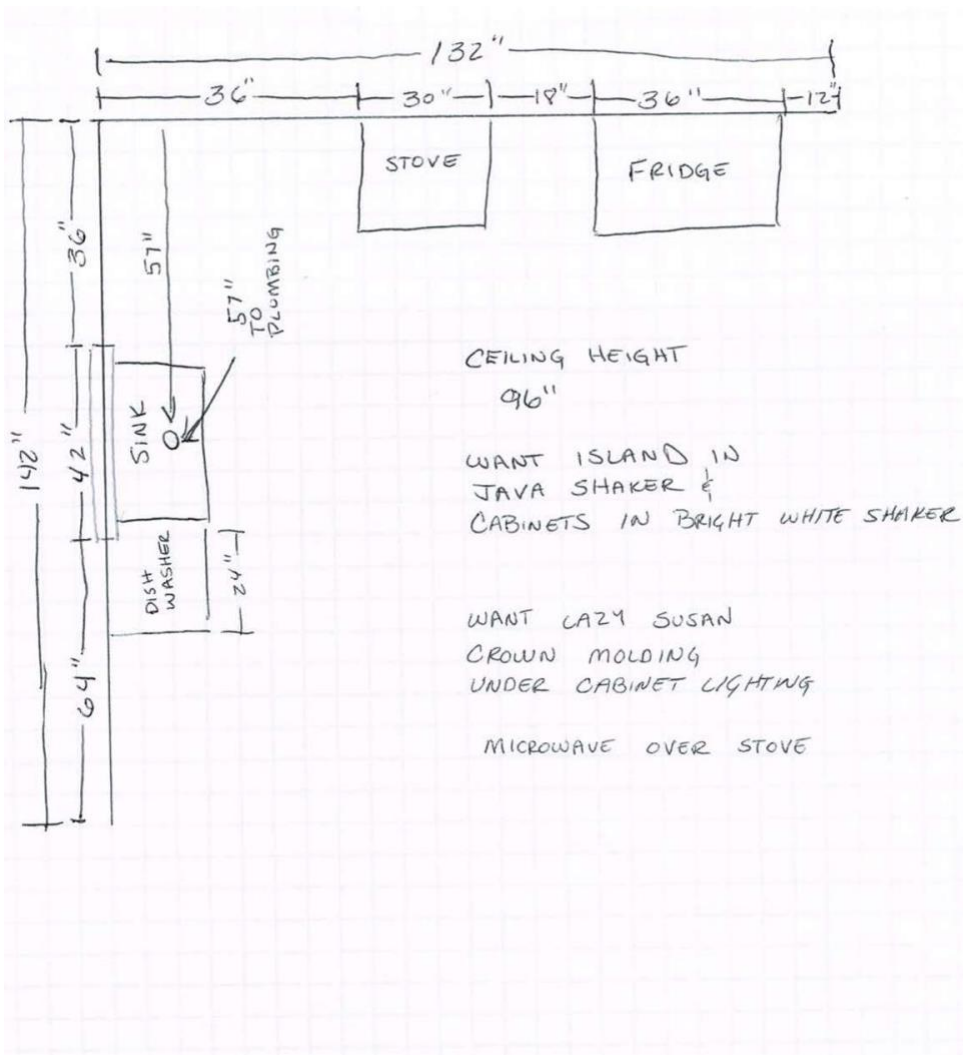 132"
36"
30"
18"
36"
12"
STOVE
FRIDGE
36"
57"
57"
TO
PLUMBING
142"
42"
SINK
DISH
WASHER
24"
64"
CEILING HEIGHT
96"
WANT ISLAND IN
JAVA SHAKER &
CABINETS IN BRIGHT WHITE SHAKER
WANT LAZY SUSAN
CROWN MOLDING
UNDER CABINET LIGHTING
MICROWAVE OVER STOVE